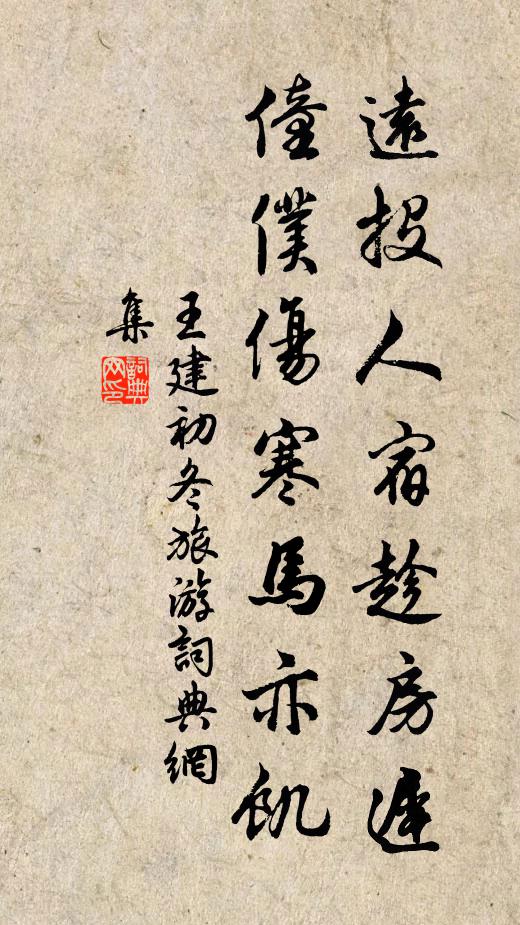 遠投人宿趂房遲
僮僕傷寒馬亦飢
王建初冬旅游詞典網
集
詞典網印